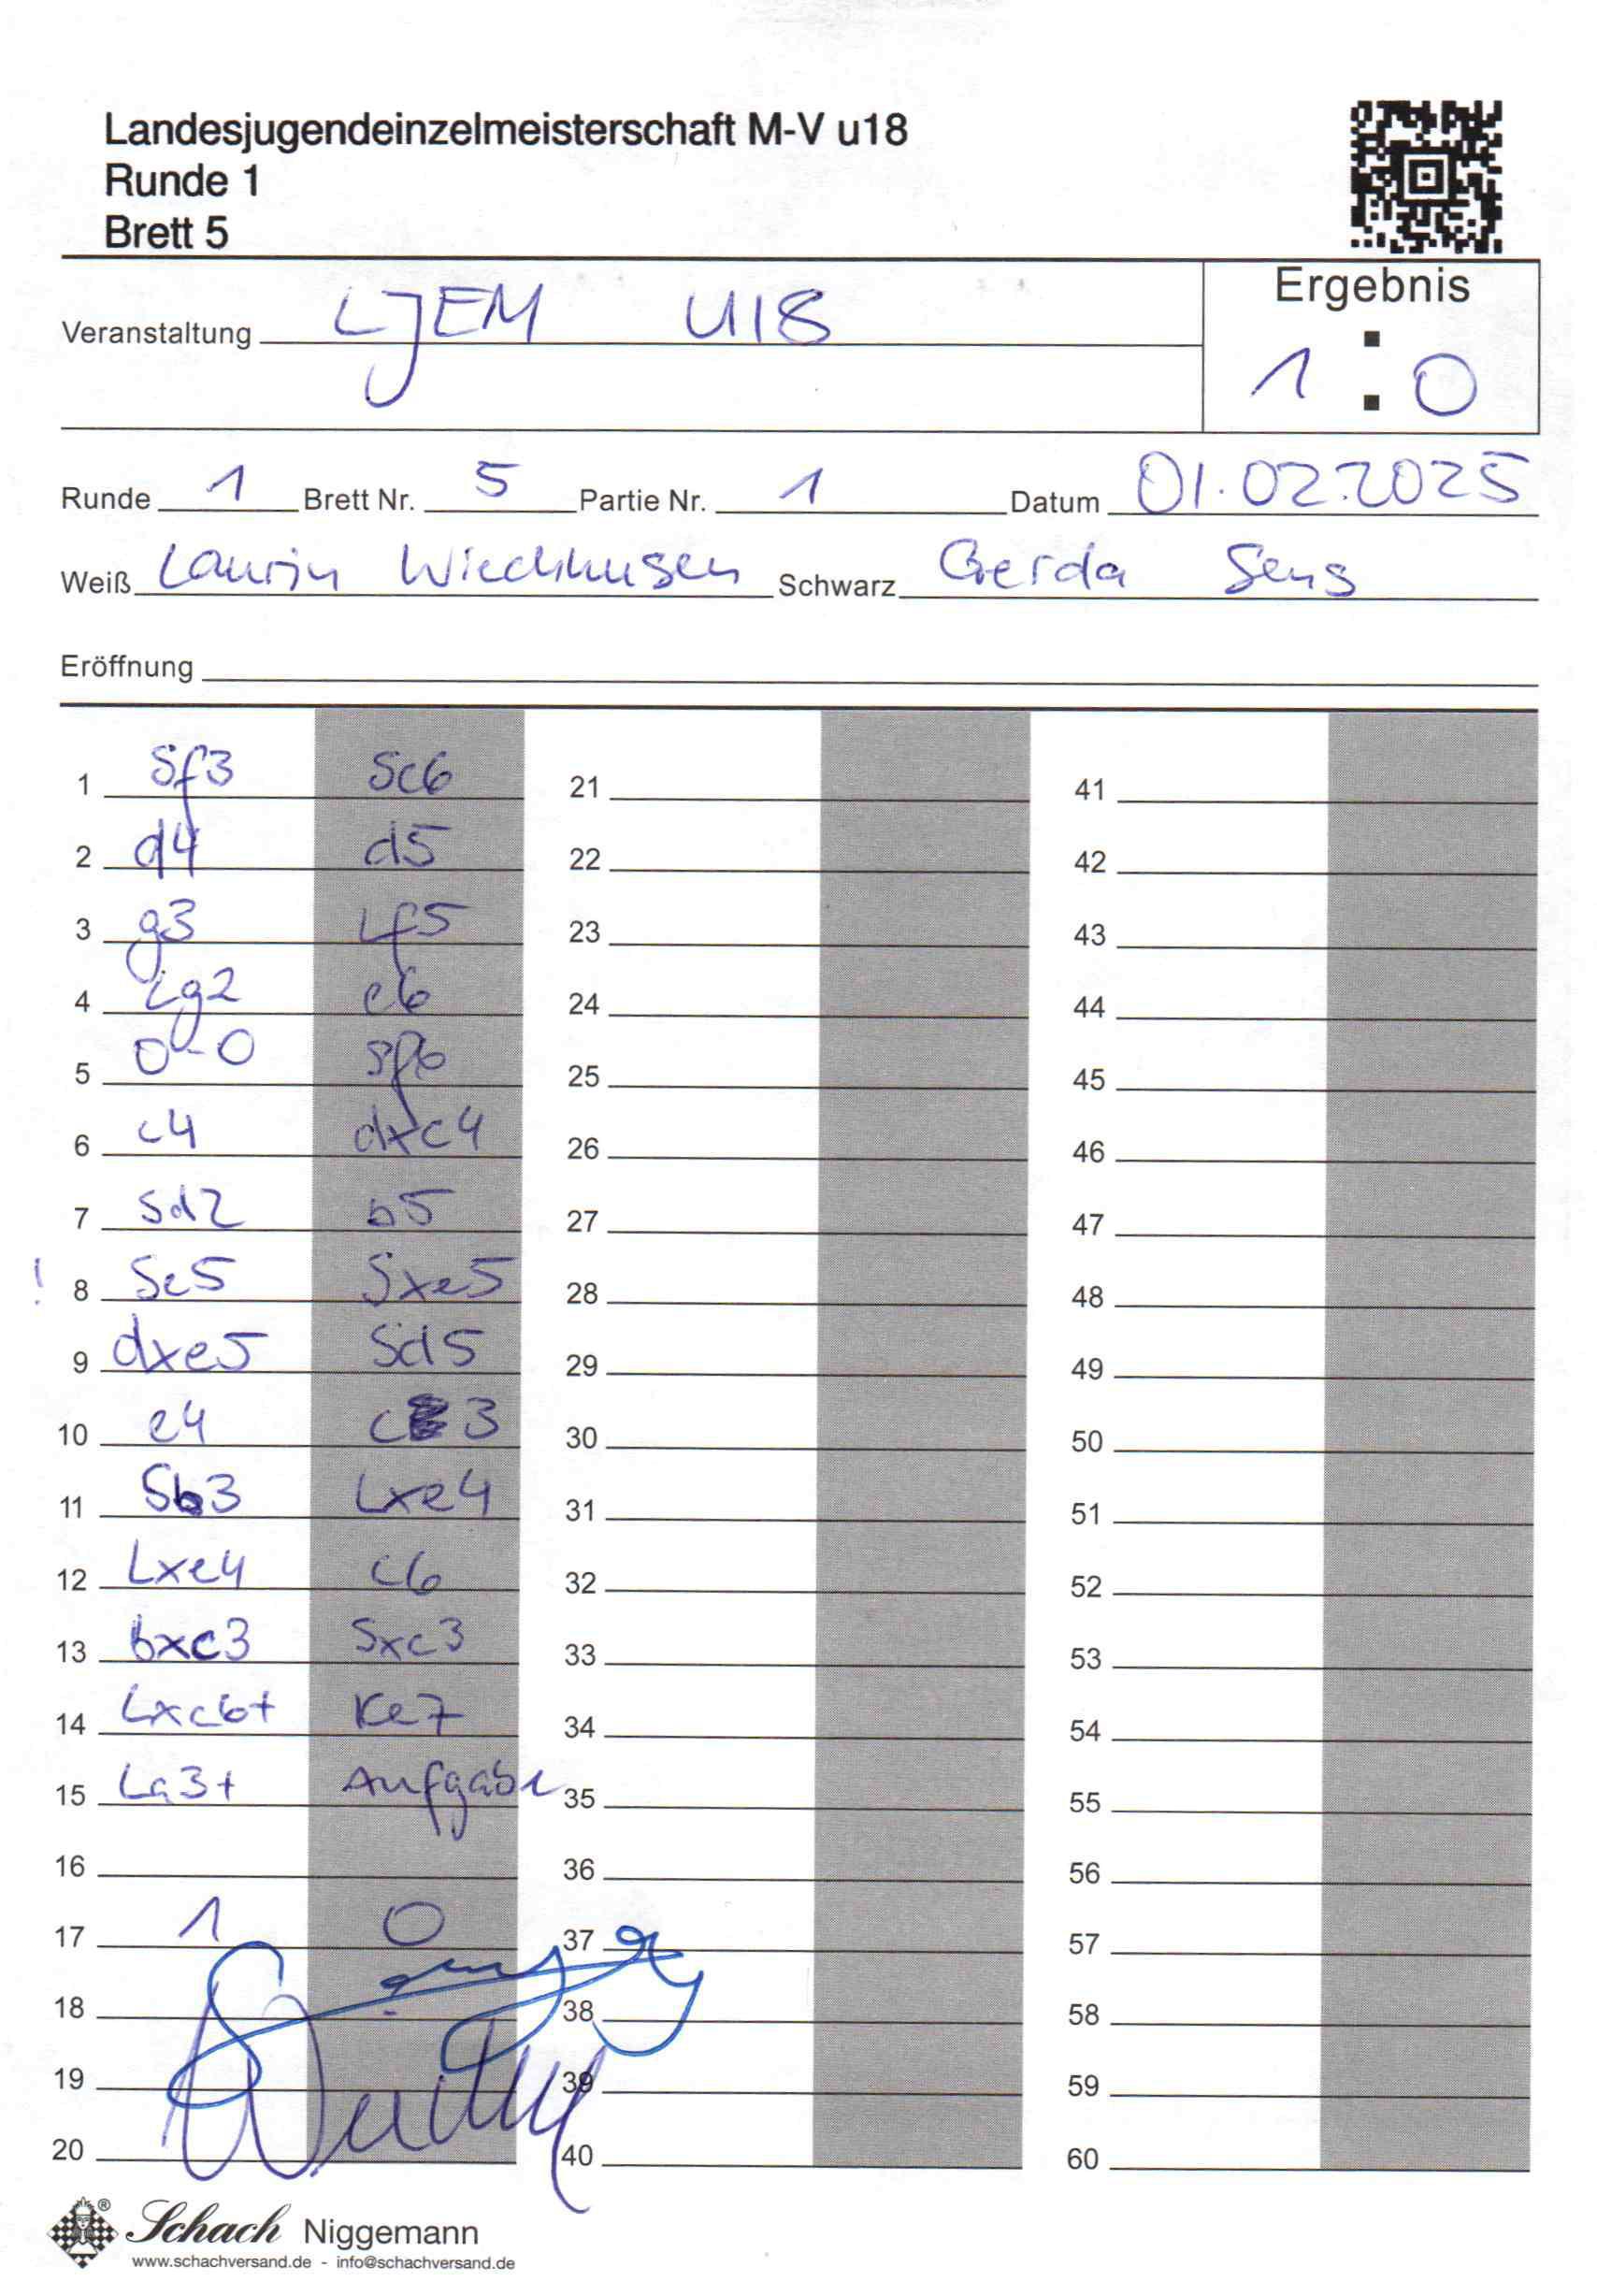 Landesjugendeinzelmeisterschaft M-V u18
Runde 1
Brett 5
Ergebnis
Veranstaltung LJEM U18
1 : 0
Runde 1 Brett Nr. 5 Partie Nr. 1 Datum 01.02.2025
Weiß Laurin Wiechhusen Schwarz Gerda Sens
Eröffnung
1 Sf3 Sc6 21 41
2 d4 d5 22 42
3 g3 Lf5 23 43
4 Lg2 e6 24 44
5 0-0 Sf6 25 45
6 c4 dxc4 26 46
7 Sd2 b5 27 47
! 8 Se5 Sxe5 28 48
9 dxe5 Sd5 29 49
10 e4 c3 30 50
11 Sb3 Lxe4 31 51
12 Lxe4 c6 32 52
13 bxc3 Sxc3 33 53
14 Lxc6+ Ke7 34 54
15 La3+ Aufgabe 35 55
16 36 56
17 1 0 37 57
18 38 58
19 39 59
20 40 60
Schach Niggemann
www.schachversand.de - info@schachversand.de